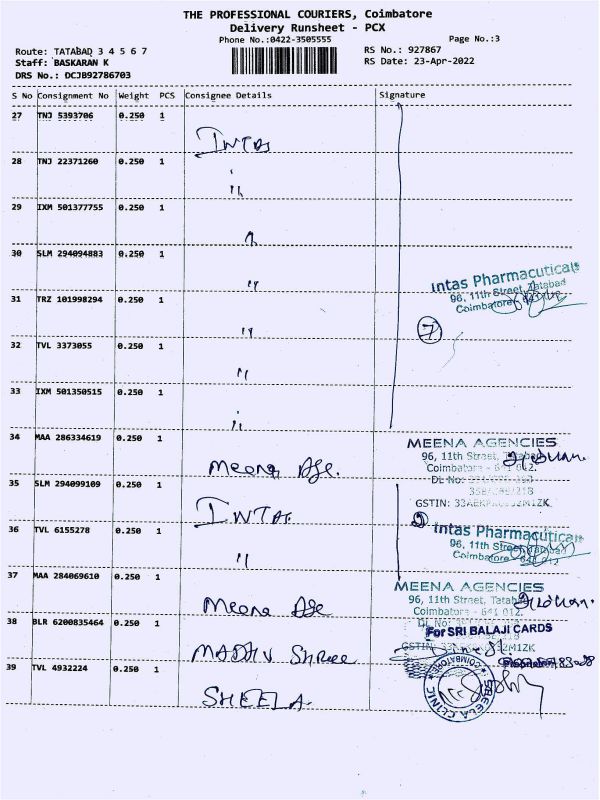 THE PROFESSIONAL COURIERS, Coimbatore
Delivery Runsheet - PCX
Phone No.:0422-3505555
Page No.:3
Route: TATABAD 3 4 5 6 7
RS No.: 927867
Staff: BASKARAN K
RS Date: 23-Apr-2022
DRS No.: DCJB92786703
S No Consignment No Weight PCS Consignee Details Signature
27 TNJ 5393706 0.250 1
INTAS
28 TNJ 22371260 0.250 1
"
29 IXM 501377755 0.250 1
"
30 SLM 294094883 0.250 1
"
Intas Pharmaceuticals
96, 11th Street, Tatabad
Coimbatore
31 TRZ 101998294 0.250 1
"
7
32 TVL 3373055 0.250 1
"
33 IXM 501350515 0.250 1
"
34 MAA 286334619 0.250 1
Meena Age.
MEENA AGENCIES
96, 11th Street, Tatabad
Coimbatore - 641 012.
DL No:
GSTIN:
35 SLM 294099109 0.250 1
INTAS
36 TVL 6155278 0.250 1
"
2
Intas Pharmaceuticals
96, 11th Street, Tatabad
Coimbatore - 641 012
37 MAA 284069610 0.250 1
Meena Age
MEENA AGENCIES
96, 11th Street, Tatabad
Coimbatore - 641 012.
DL No:
GSTIN:
38 BLR 6200835464 0.250 1
MADHV Shree
For SRI BALAJI CARDS
39 TVL 4932224 0.250 1
SHEELA
SHEELA CLINIC
COIMBATORE